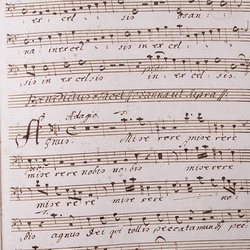 cel sis osan
na in ex cel sis
sis in ex celsis in ex cel sis
Benedictus tacet osanna ut supra
Adagio
Agnus Mise rere mise rere
mise rere nobis no bis mise rere
mi se re re mise rere no
bis agnus Dei qui tollis peccata mundi